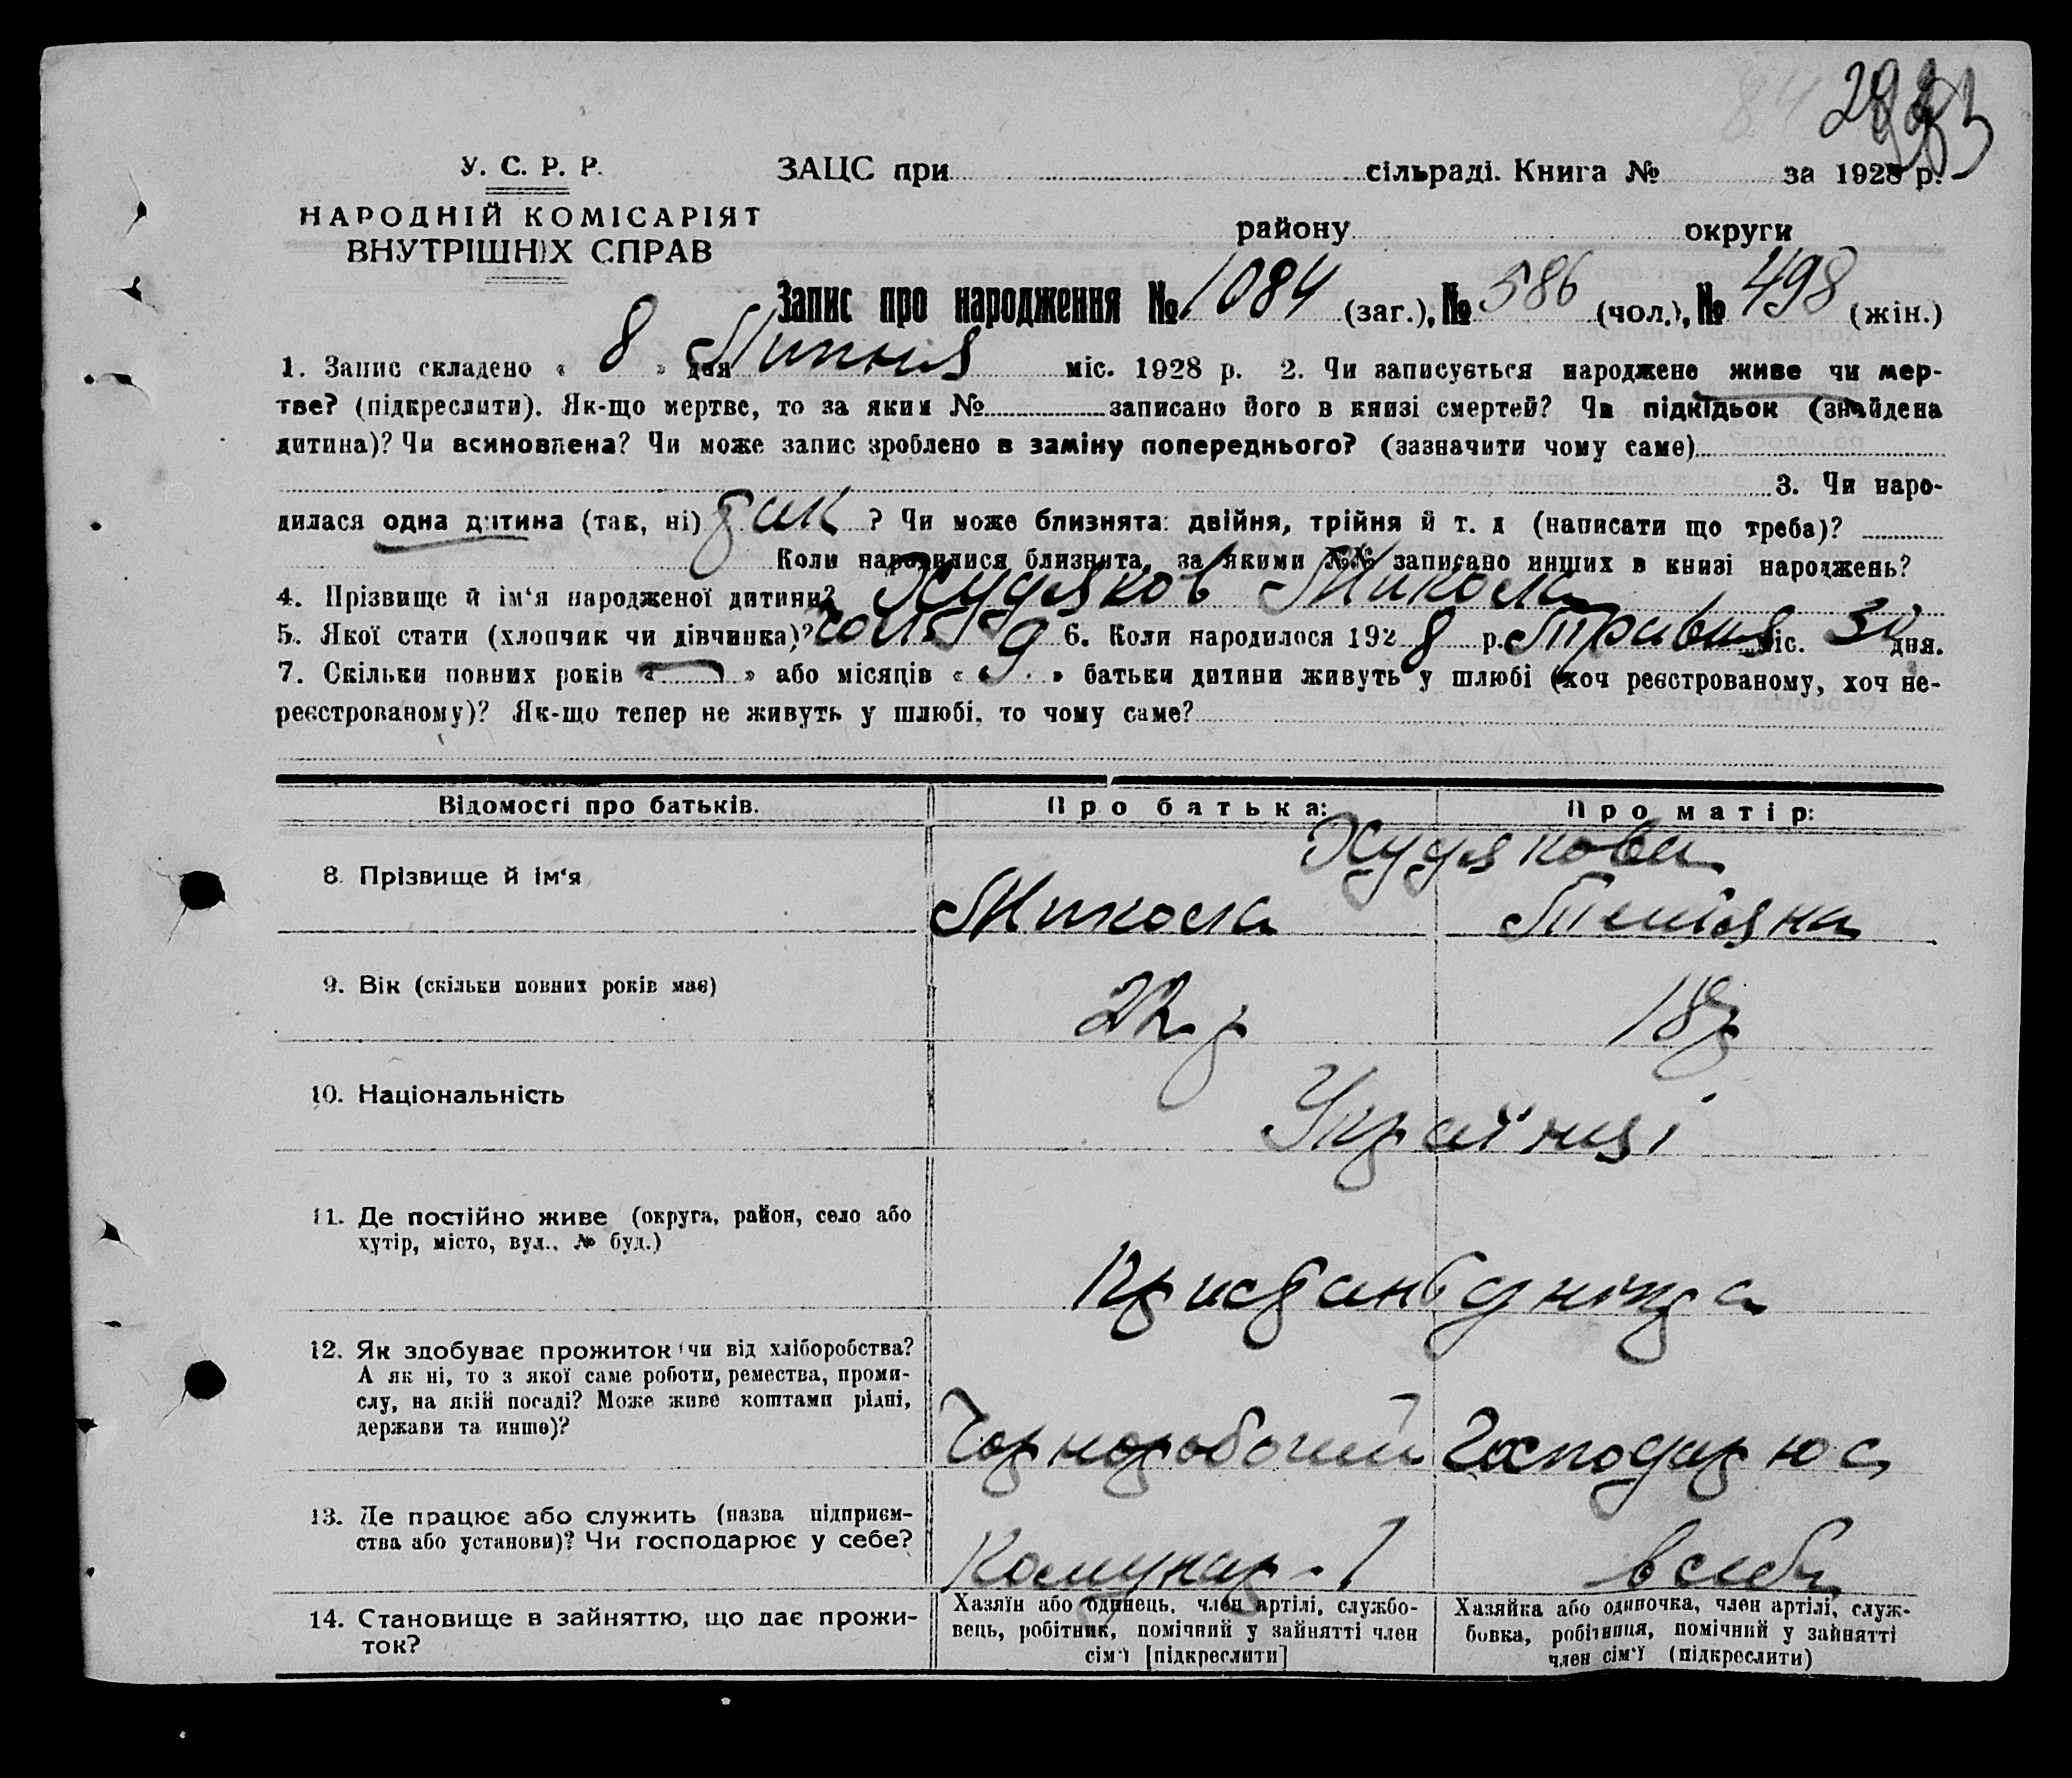 У. С. Р. Р.
ЗАЦС при сільраді. Книга № за 1928 р.
НАРОДНІЙ КОМІСАРІЯТ
ВНУТРІШНІХ СПРАВ
району округи
Запис про народження № 1084 (заг.), № 586 (чол.), № 498 (жін.)
1. Запис складено « 8 » дня Липня міс. 1928 р. 2. Чи записується народжене живе чи мер-
тве? (підкреслити). Як-що мертве, то за яким № записано його в книзі смертей? Чи підкідьок (знайдена
дитина)? Чи всиновлена? Чи може запис зроблено в заміну попереднього? (зазначити чому саме)
3. Чи наро-
дилася одна дитина (так, ні) так ? Чи може близнята: двійня, трійня й т. д (написати що треба)?
Коли народилися близнята, за якими №№ записано инших в книзі народжень?
4. Прізвище й ім‘я народженої дитини? Худяков Микола
5. Якої стати (хлопчик чи дівчинка)? чол 6. Коли народилося 1928 р. Травня міс. 30 дня.
7. Скільки повних років « — » або місяців « 9 » батьки дитини живуть у шлюбі (хоч реєстрованому, хоч не-
реєстрованому)? Як-що тепер не живуть у шлюбі, то чому саме?
Відомості про батьків. Про батька: Про матір:
Худякови
8. Прізвище й ім‘я Микола Тетіяна
9. Вік (скільки повних років має) 22 р 18 р
10. Національність Українці
11. Де постійно живе (округа, район, село або
хутір, місто, вул., № буд.)
12. Як здобуває прожиток (чи від хліборобства?
А як ні, то з якої саме роботи, ремества, проми-
слу, на якій посаді? Може живе коштами рідні,
держави та инше)?
Чорноробочий Господарює
13. Де працює або служить (назва підприєм-
ства або установи)? Чи господарює у себе?
Комунар - 1 в себе
14. Становище в зайняттю, що дає прожи-
ток?
Хазяїн або одинець, член артілі, службо-
вець, робітник, помічний у зайнятті член
сім‘ї [підкреслити]
Хазяйка або одиночка, член артілі, служ-
бовка, робітниця, помічний у зайнятті
член сім‘ї (підкреслити)